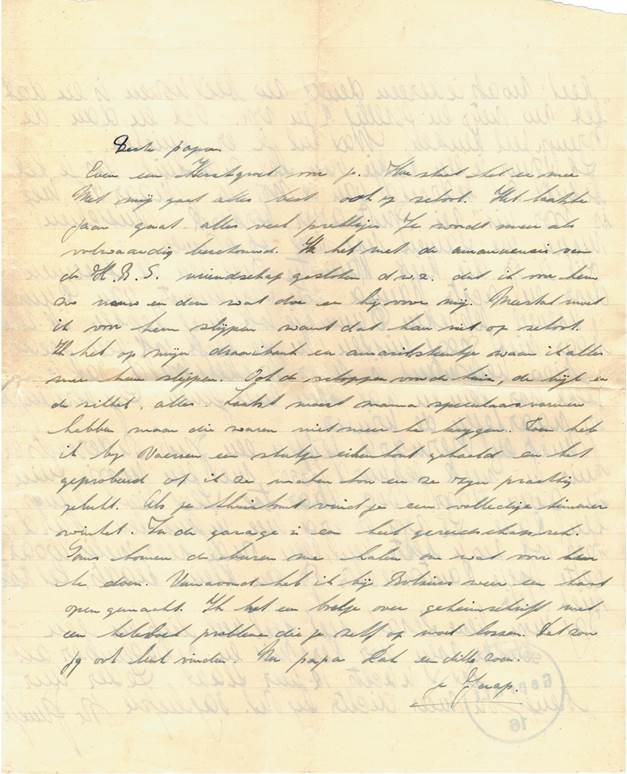 Beste papa
Even een Kerstgroet voor je. Hoe staat het er mee
Met mij gaat alles best ook op school. Het laatste
jaar gaat alles veel prettiger. Je wordt meer als
volwaardig beschouwd. Ik heb met de amanuensis van
de H.B.S. vriendschap gesloten d.w.z. dat ik voor hem
zo nu en dan wat doe en hij voor mij. Meestal moet
ik voor hem slijpen want dat kan niet op school.
Ik heb op mijn draaibank een amarilsteentje waar ik alles
mee kan slijpen. Ook de schoppen van de tuin, de bijl en
de sikkel, alles. Laatst moest mama speculaasvormen
hebben maar die waren niet meer te krijgen. Toen heb
ik bij een stukje eikenhout gehaald en heb
geprobeerd of ik ze maken kon en ze zijn prachtig
gelukt. Als je thuiskomt vind je een volledige timmer
winkel. In de garage is een heel gereedschapsrek.
Soms komen de buren me halen om wat voor hen
te doen. Vanavond heb ik bij weer een kast
open gemaakt. Ik heb een boekje over geheimschrift met
een heleboel problemen die je zelf op moet lossen. Dat zou
jij ook leuk vinden. Nu papa dag en dikke zoen.
Jaap.
16